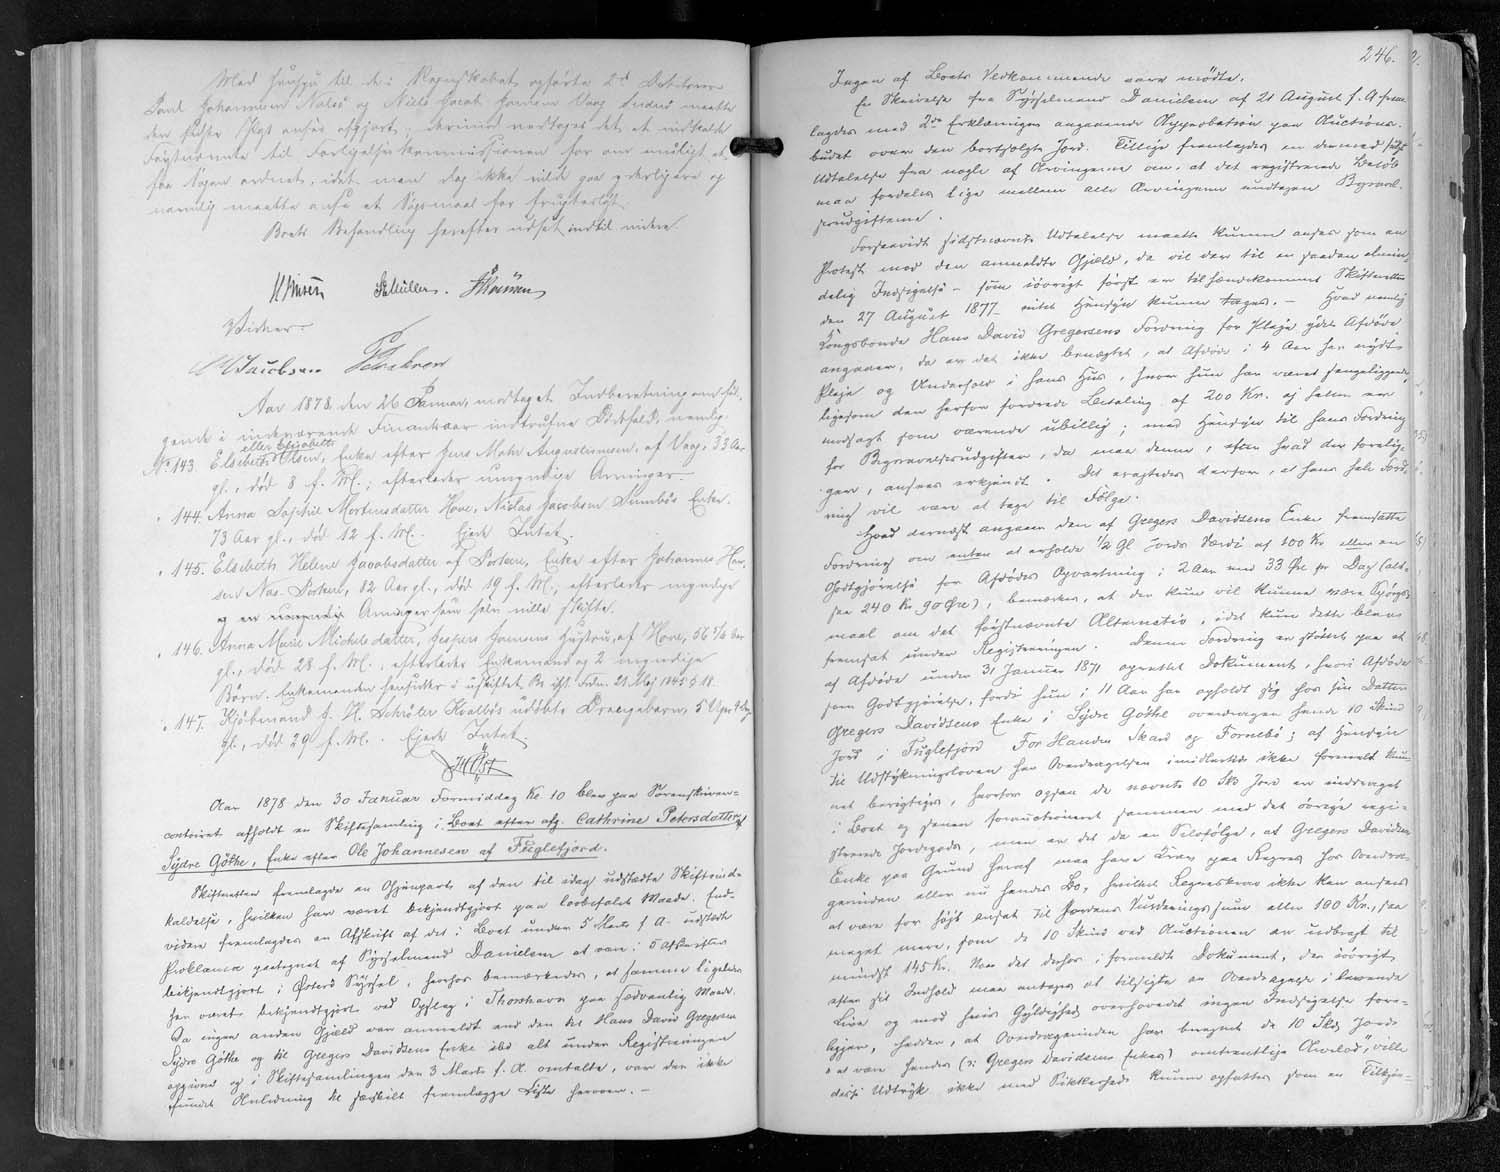 Med Hensyn til de i Regnskabet opførte 2de Debitorer
Poul Johannesen Nolsø og Niels Jacob Hansen Vaag
den sidste Post anses afgjort; derimod vedtoges det at indkalde
Førstnævnte til Forligelseskommissionen for om muligt at
faa Sagen ordnet, idet man dog ikke vilde gaa yderligere og
navnlig maatte anse et Søgsmaal for frugtesløst.
Boets Behandling herefter udsat indtil videre.
Müller.
Vidner:
Jacobsen
Aar 1878, den 26 Januar, modtaget Indberetning om føl-
gende i indeværende Finantsaar indtrufne Dødsfald, nemlig
eller Elisabeth
No 143. Elsebeth Olsen, Enke efter Jens Mohr Augustinussen, af Vaag, 33 Aar
gl., død 8 f. M.; efterlader umyndige Arvinger.
" 144. Anna Sophie Mortensdatter Hove, Niclas Jacobsen Sumbøs Enke,
73 Aar gl., død 12 f. M. Ejede Intet.
" 145. Elsebeth Helene Jacobsdatter af Porkere, Enke efter Johannes Han-
sen Porkere, 82 Aar gl., død 19 f. M., efterlader myndige
Arvinger som selv ville skifte.
" 146. Anna Marie Michelsdatter, Jespers Hansens Hustru, af Hove, 56 Aar
gl., død 28 f. M., efterlader Enkemand og 2 myndige
Børn. Enkemanden hensidder i uskiftet Bo ifl. Frdn. 21 Maj 1845 § 18.
" 147. Kjøbmand J. H. Schrøter Kvalbøs udøbte Drengebarn, 5 Uger
gl., død 29 f. M. Ejede Intet.
Aar 1878 den 30 Januar Formiddag Kl. 10 blev paa Sorenskriver-
contoiret afholdt en Skiftesamling i Boet efter afg. Cathrine Petersdatter
Sydre Gøthe, Enke efter Ole Johannesen af Fuglefjord.
Skifteretten fremlagde en Gjenpart af den til idag udstedte Skifteind-
kaldelse, hvilken har været bekjendtgjort paa lovbefalet Maade. End-
videre fremlagdes en Afskrift af det i Boet under 5 Marts f. A. udstedte
Proklama paategnet af Sysselmand Danielsen at være i 5 Afskrifter
bekjendtgjort i Østerø Syssel, hvorhos bemærkedes, at samme ligeledes
har været bekjendtgjort ved Opslag i Thorshavn paa sædvanlig Maade.
Da ingen anden Gjæld var anmeldt end den til Hans David Gregersen
Sydre Gøthe og til Gregers Davidsens Enke ibd. alt under Registreringen
opgivne og i Skiftesamlingen den 3 Marts f. A. omtalte, var der ikke
fundet Anledning til særskilt fremlægge Liste herover. —
246.
Ingen af Boets Vedkommende vare mødte.
En Skrivelse fra Sysselmand Danielsen af 21 August f. A. frem-
lagdes med 2de Erklæringer angaaende Approbation paa Auctions-
budet over den bortsolgte Jord. Tillige fremlagdes en dermed fulgt
Udtalelse fra nogle af Arvingerne om, at det registrerede Beløb
maa fordeles lige mellem alle Arvingerne undtagen Begravel-
sesudgifterne.
Forsaavidt sidstnævnte Udtalelse maatte kunne anses som en
Protest mod den anmeldte Gjæld, da vil der til en saadan almin-
delig Indsigelse – som iøvrigt først er tilhændekommet Skifteretten
den 27 August 1877 – intet Hensyn kunne tages. – Hvad nemlig
Kongsbonde Hans David Gregersens Fordring for Pleje ydet Afdøde
angaaer, da er det ikke benægtet, at Afdøde i 4 Aar har nydt
Pleje og Underhold i hans Hus, hvor hun har været sengeliggende,
ligesom den herfor fordrede Betaling af 200 Kr. ej heller er
modsagt som værende ubillig; med Hensyn til hans Fordring
for Begravelsesudgifter, da maa denne, efter hvad der forelig-
ger, ansees erkjendt. Det eragtedes derfor, at hans hele Ford-
ring vil være at tage til Følge.
Hvad dernæst angaaer den af Gregers Davidsens Enke fremsatte
Fordring om enten at erholde ½ Gl. Jords Værdi af 100 Kr eller en
Godtgjørelse for Afdødes Opvartning i 2 Aar med 33 Øre pr Dag (alt-
saa 240 Kr. 90 Øre), bemærkes, at der kun vil kunne være Spørgs-
maal om det førstnævnte Alternativ, idet kun dette blev
fremsat under Registreringen. Denne Fordring er støttet paa et
af Afdøde under 31 Januar 1871 oprettet Dokument, hvori Afdøde
som Godtgjørelse, fordi hun i 11 Aar har opholdt sig hos sin Datter
Gregers Davidsens Enke i Sydre Gøthe overdrager hende 10 Skind
Jord i Fuglefjord For Handen Skard og Fornebø; af Hensyn
til Udstykningsloven har Overdragelsen imidlertid ikke formelt kun-
net berigtiges, hvorfor ogsaa de nævnte 10 Skd Jord er inddraget
i Boet og senere forauctioneret sammen med det øvrige regi-
strerede Jordegods, men er det da en Selvfølge, at Gregers Davidsens
Enke paa Grund heraf maa have Krav paa Regres hos Overdra-
gerinden eller nu hendes Bo, hvilket Regreskrav ikke kan anses
at være for højt ansat til Jordens Vurderingssum eller 100 Kr., saa
meget mere, som de 10 Skind ved Auctionen er udbragt til
mindst 145 Kr. Naar det derhos i formeldte Dokument, der iøvrigt
efter sit Indhold maa antages at tilsigte en Overdragelse i levende
Live og mod hvis Gyldighed overhovedet ingen Indsigelse fore-
ligger, hedder, at Overdragerinden har bestemt de 10 Skd Jord
"at være hendes (ɔ: Gregers Davidsens Enkes) omtrentlige Arvelod", ville
disse Udtryk ikke med Sikkerhed kunne opfattes som en Tilkjen-